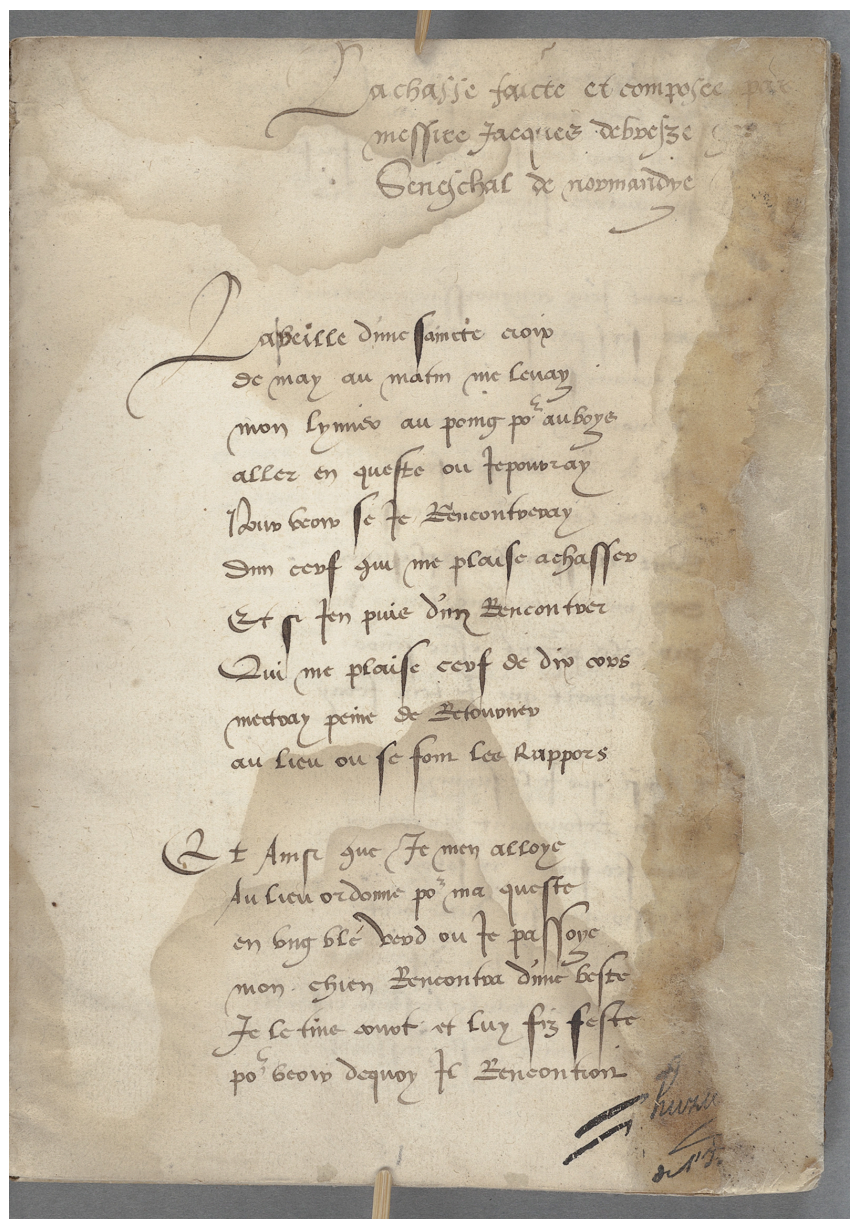 La chasse faicte et composee par
messire Jacques de bresze
Seneschal de normandye
La veille d'une saincte croix
de may au matin me levay
mon lymier au poing po^r au boys
aller en queste ou Je pouvray
Pour veoir se Je Rencontreray
d'un cerf qui me plaise a chasser
Et si J'en puis d'un Rencontrer
Qui me plaise cerf de dix cors
mectray peine de Retourner
au lieu ou se font les Rappors
Et Ainsi que Je m'en alloye
Au lieu ordonne po^r ma queste
en ung blé verd ou Je passoye
mon chien Rencontra d'une beste
Je le tins court et luy fiz feste
po^r veoir de quoy Il Rencontroit